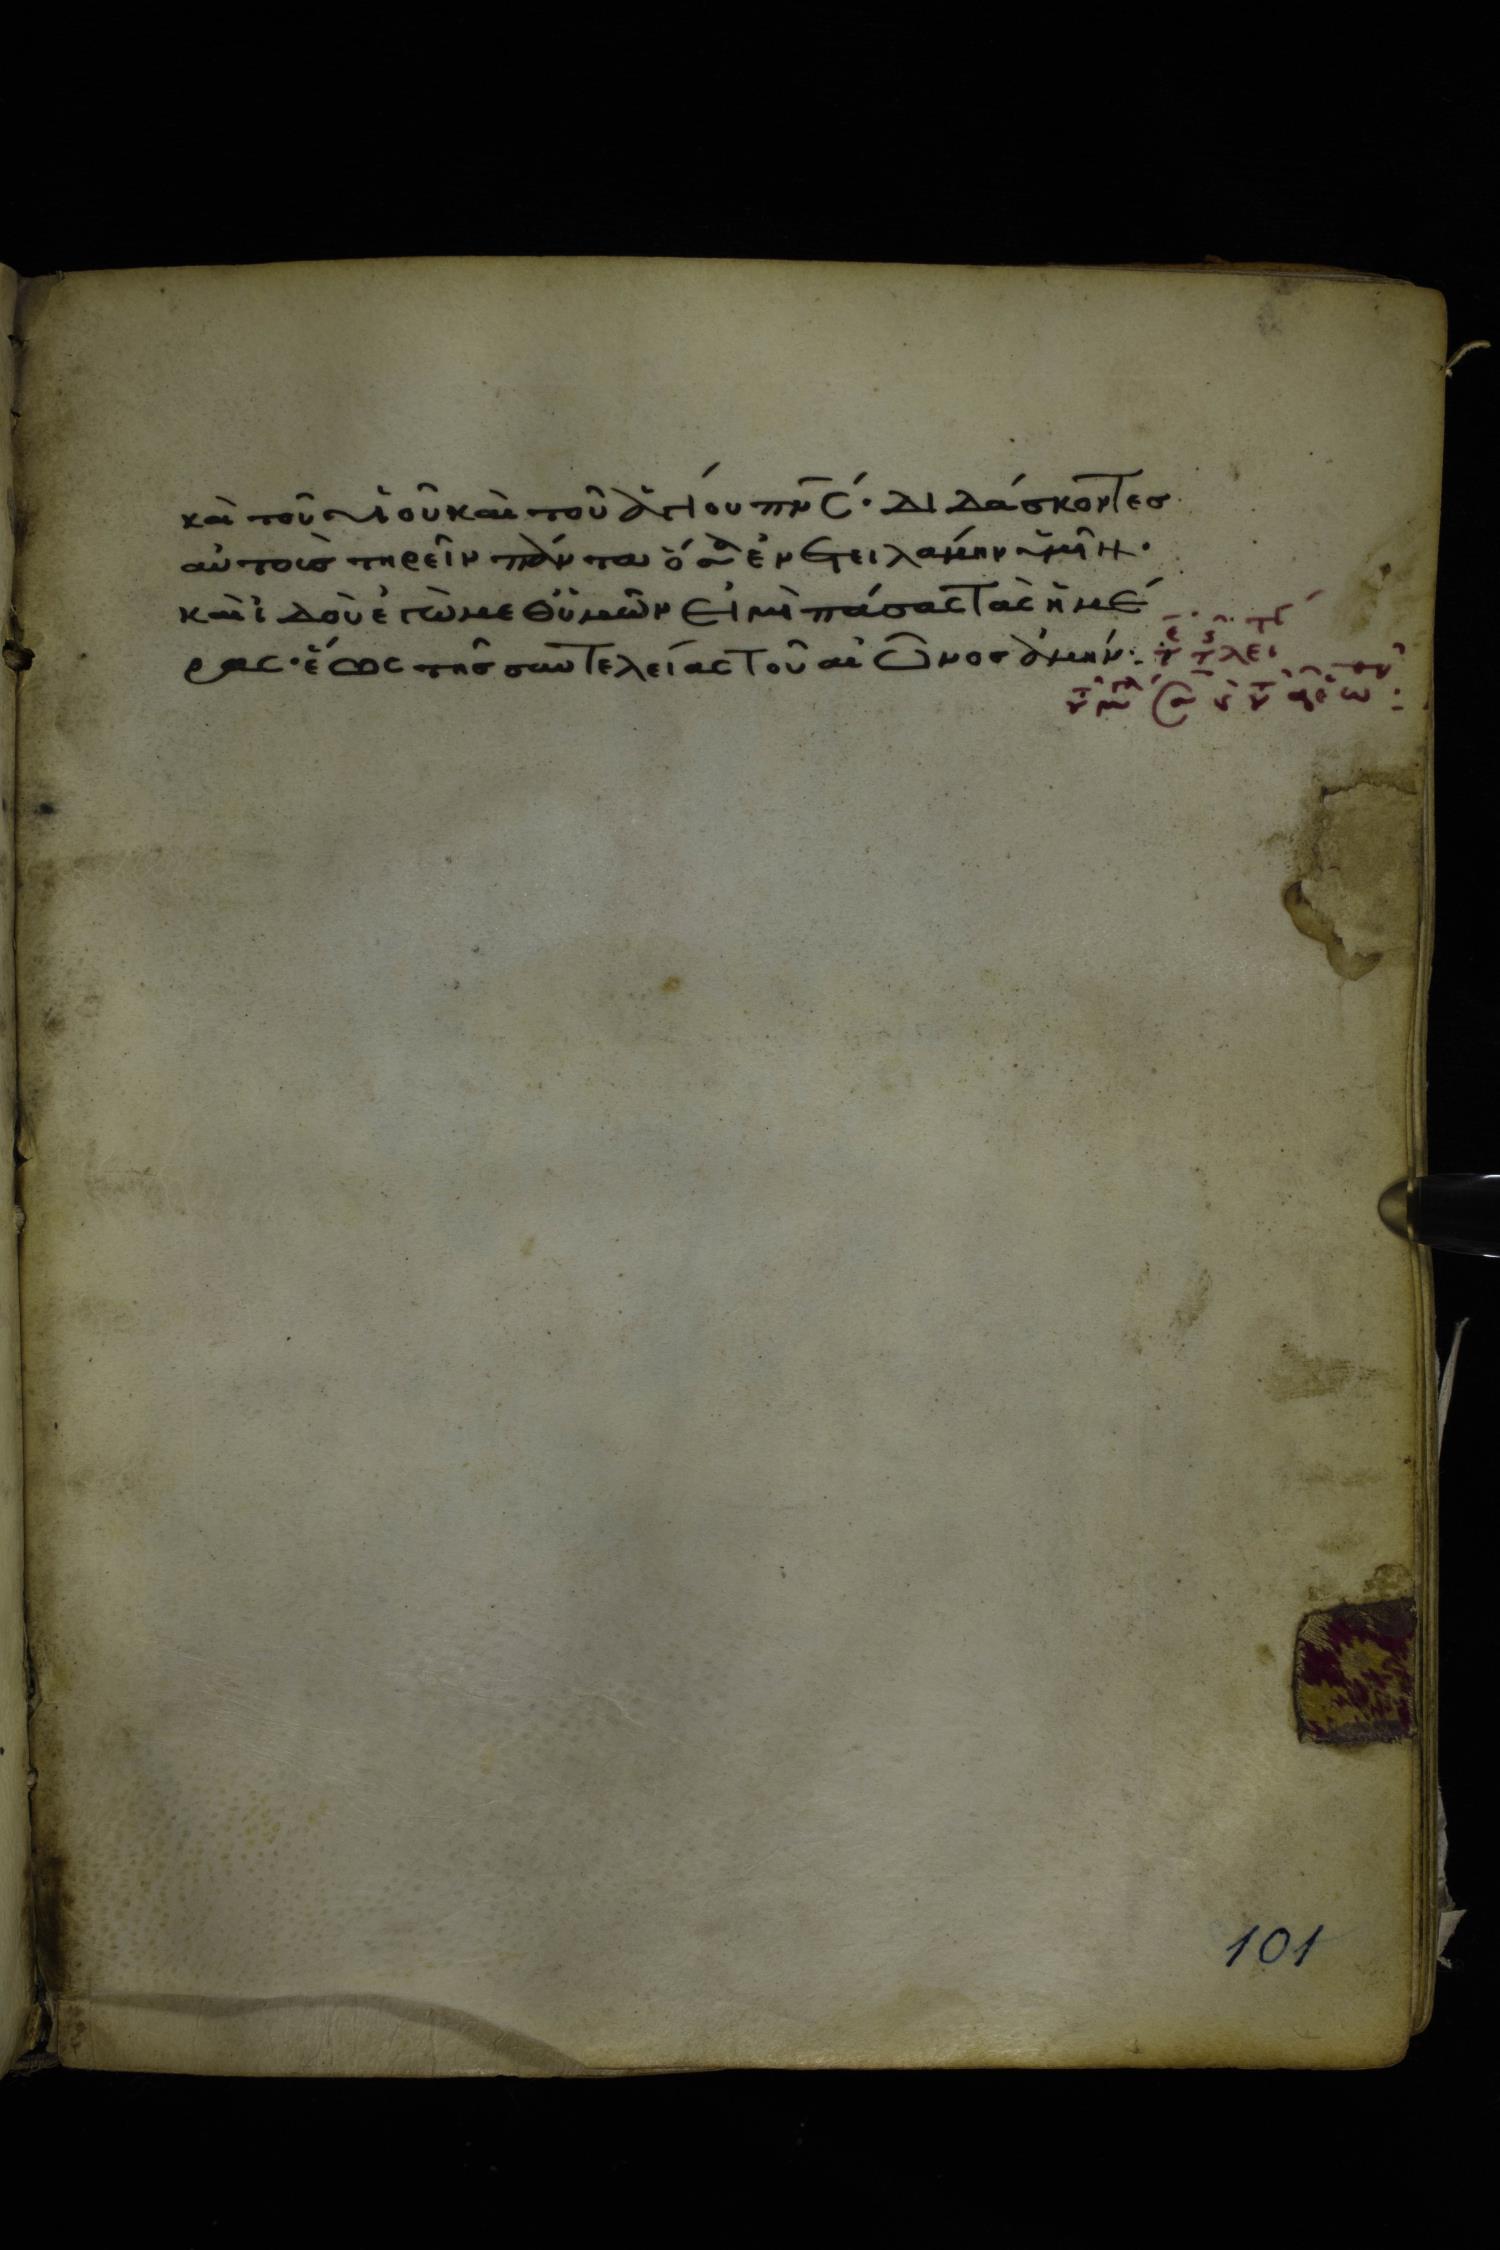 καὶ τοῦ υἱοῦ καὶ τοῦ ἁγίου πν̅ς· διδάσκοντες
αὐτοὺς τηρεῖν πάντα ὅσα ἐνετειλάμην ὑμῖν·
καὶ ἰδοὺ ἐγὼ μεθ ὑμῶν εἰμὶ πάσας τὰς ἡμέ
ρας· ἕως τῆς συντελείας τοῦ αἰῶνος ἀμήν:
101